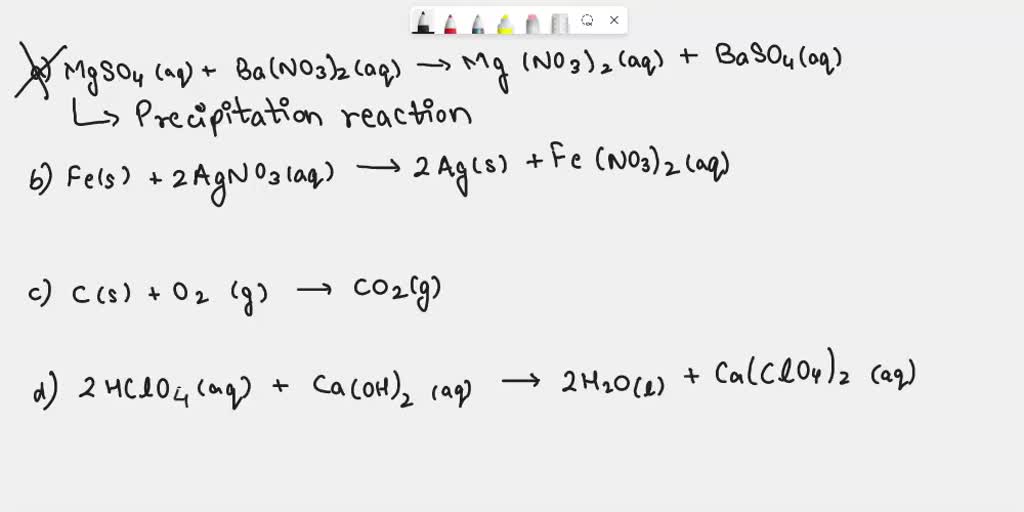 a) MgSO4 (aq) + Ba(NO3)2 (aq) → Mg (NO3)2 (aq) + BaSO4 (aq)
↳ Precipitation reaction
b) Fe(s) + 2AgNO3 (aq) → 2Ag(s) + Fe (NO3)2 (aq)
c) C(s) + O2 (g) → CO2(g)
d) 2HClO4 (aq) + Ca(OH)2 (aq) → 2H2O(l) + Ca(ClO4)2 (aq)